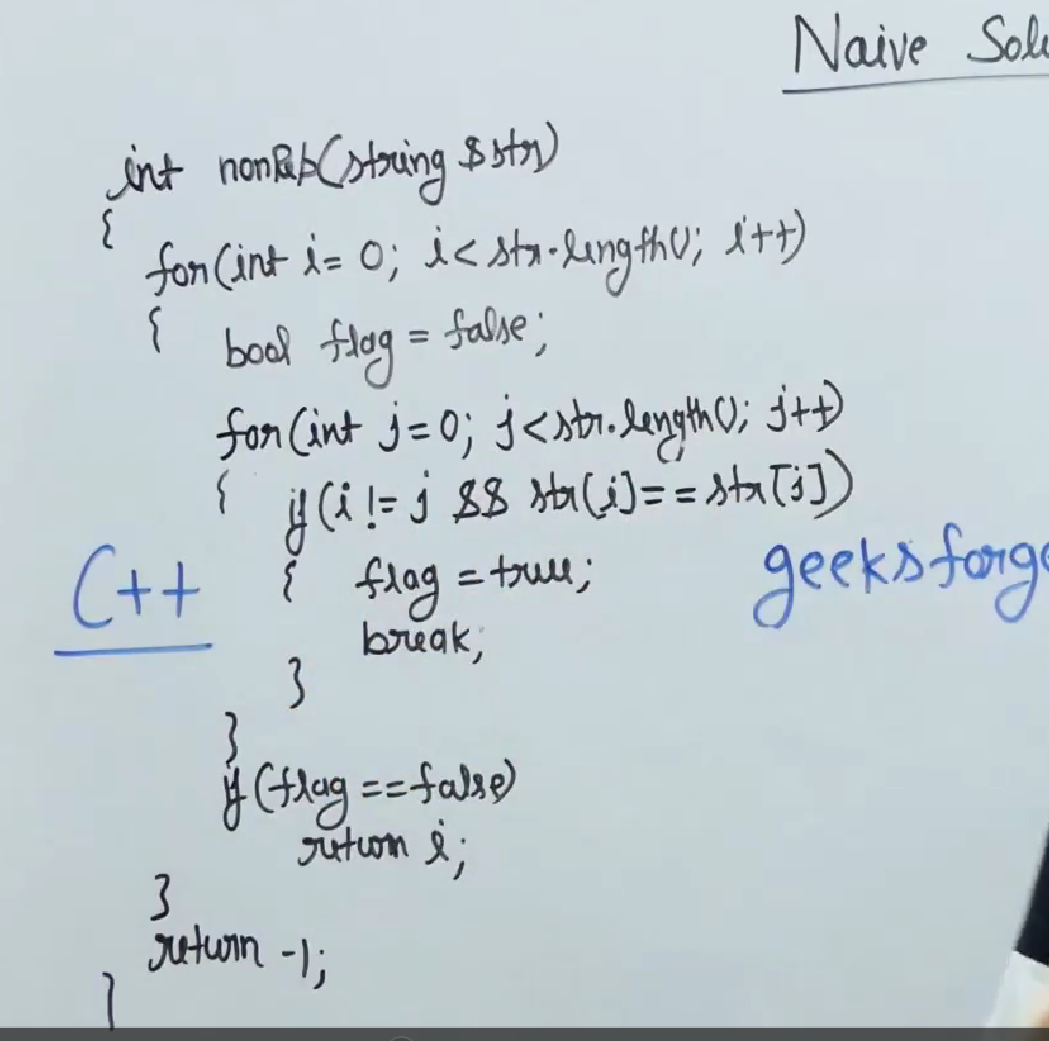 Naive Solu
int nonRep(string &str)
{
for(int i=0; i<str.length(); i++)
{ bool flag = false;
for(int j=0; j<str.length(); j++)
{ if(i != j && str[i]==str[j])
C++
{ flag = true;
geeksforge
break;
}
}
if(flag==false)
return i;
}
return -1;
}